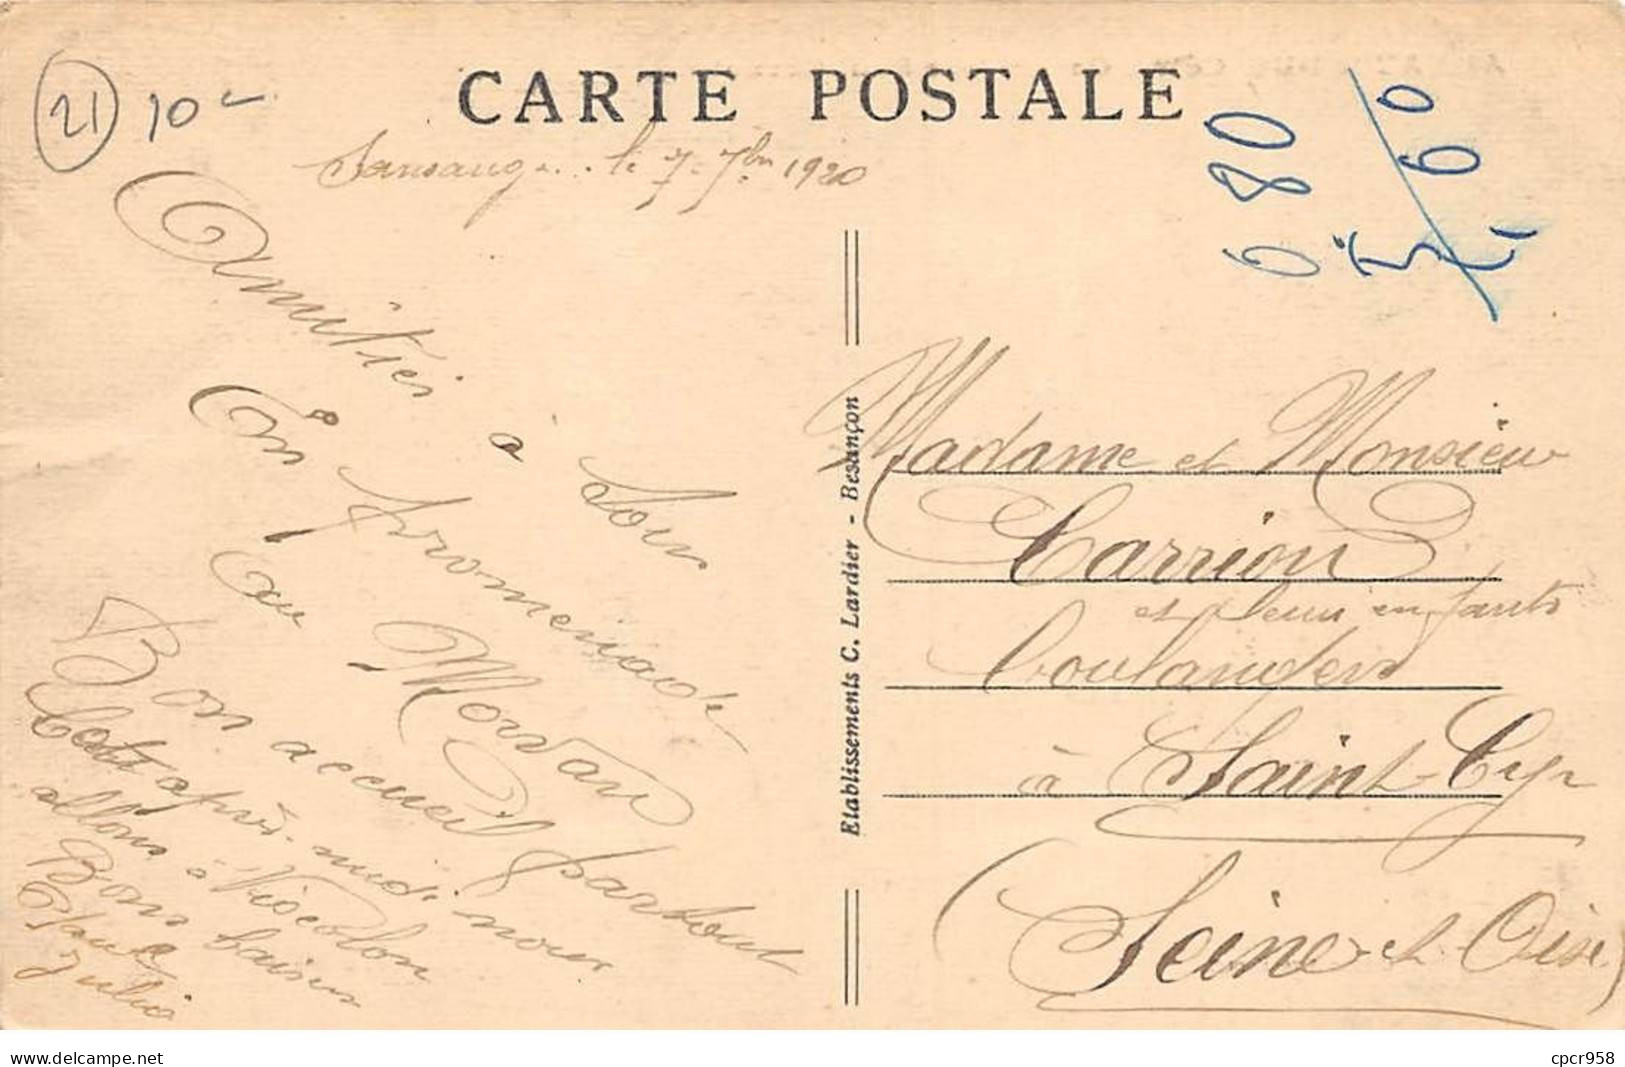 CARTE POSTALE
21
10
le 7 7bre 1920
Amitiés à tous
En promenade
au Morvan
Bon accueil partout
Cet après-midi nous
allons à
Bons baisers
Paul
Julia
Etablissements C. Lardier - Besançon
680
Madame et Monsieur
Carrion
et leurs enfants
boulangers
à Saint-Cyr
(Seine-et-Oise)
www.delcampe.net
cpcr958